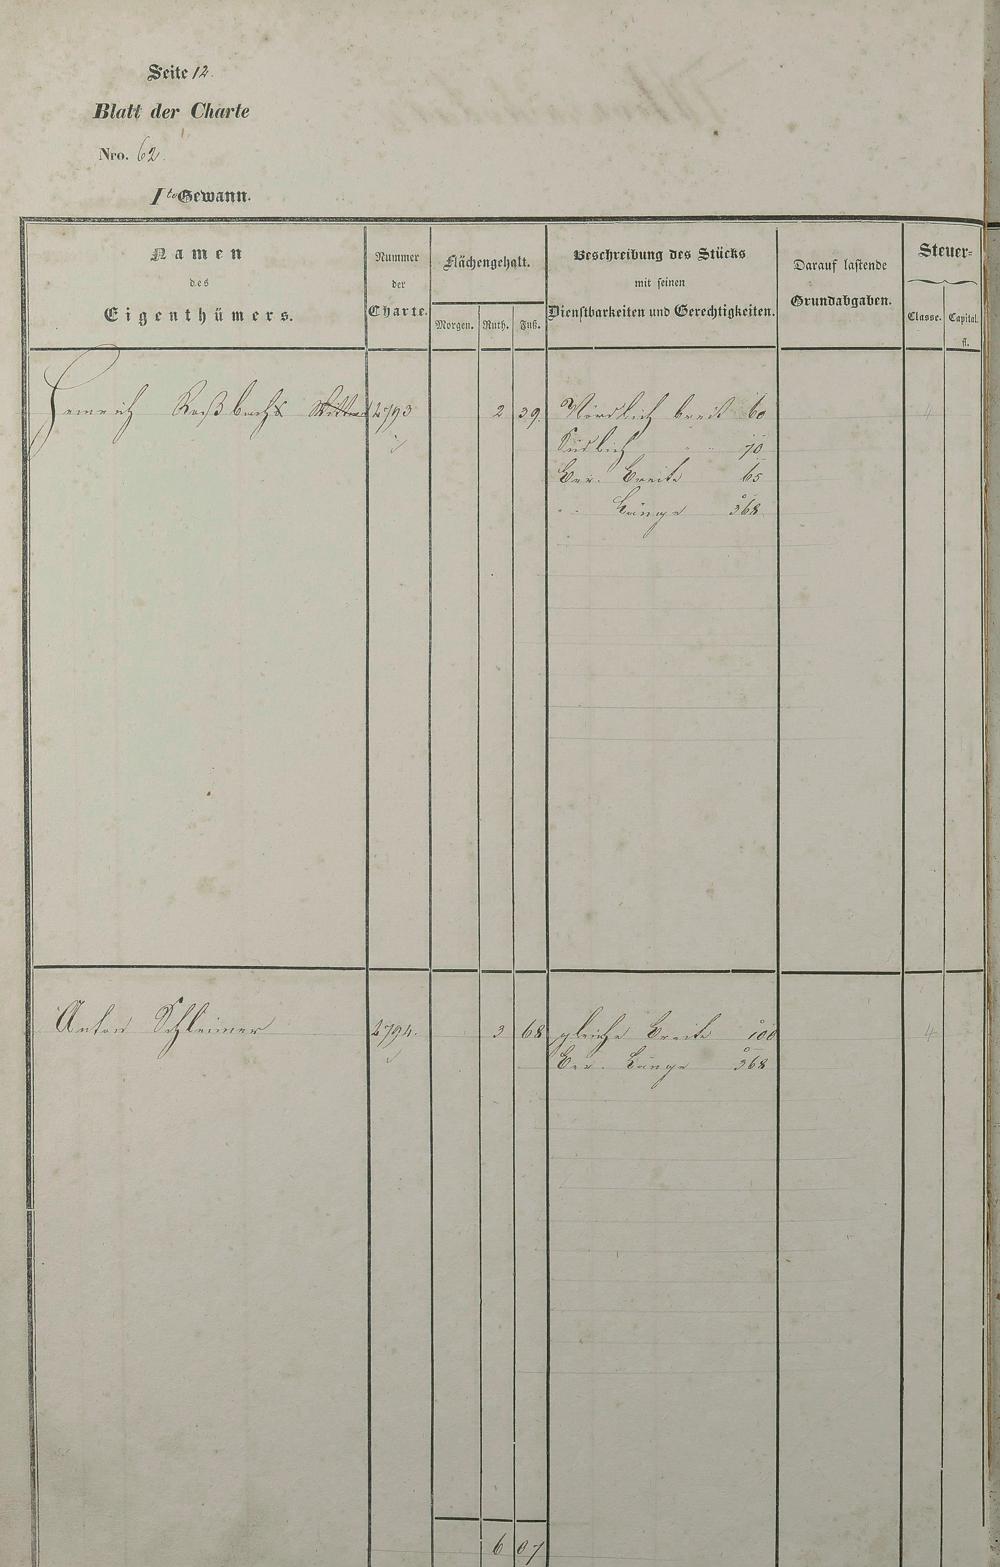 Seite 12.
Blatt der Charte
Nro. 62.
I te Gewann.
Namen
des
Eigenthümers.
Nummer
der
Charte.
Flächengehalt.
Morgen. Ruth. Fuß.
Beschreibung des Stücks
mit seinen
Dienstbarkeiten und Gerechtigkeiten.
Darauf lastende
Grundabgaben.
Steuer-
Classe. Capital.
fl.
Heinrich Roßbachs Wittwe 2793 2 39. Nördlich breit 60 4
Südlich " " 70
Ber. Breite 65
" Länge 368
Anton Schleimer 2794. 3 68 gleiche Breite 100 4
Ber. Länge 368
6 07